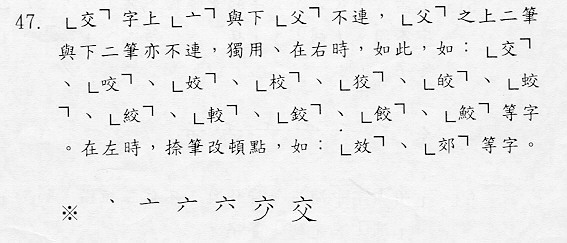 47. ﹂交﹁字上﹂亠﹁與下﹂父﹁不連，﹂父﹁之上二筆
與下二筆亦不連，獨用、在右時，如此，如：﹂交﹁
、﹂咬﹁、﹂姣﹁、﹂校﹁、﹂狡﹁、﹂皎﹁、﹂蛟
﹁、﹂絞﹁、﹂較﹁、﹂鉸﹁、﹂餃﹁、﹂鮫﹁等字
。在左時，捺筆改頓點，如：﹂效﹁、﹂郊﹁等字。
※ 丶 亠 六 交